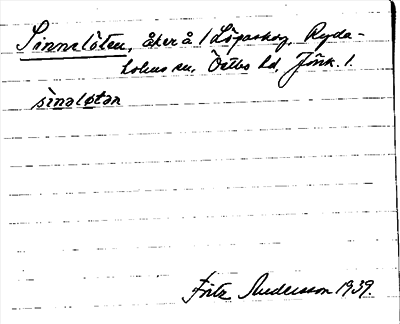 Sinnelöten, åker å 1 Lögaskog, Ryda-
holms sn, Östbo hd, Jönk. l.
sìnəlø̀tən
Fritz Andersson 1939.